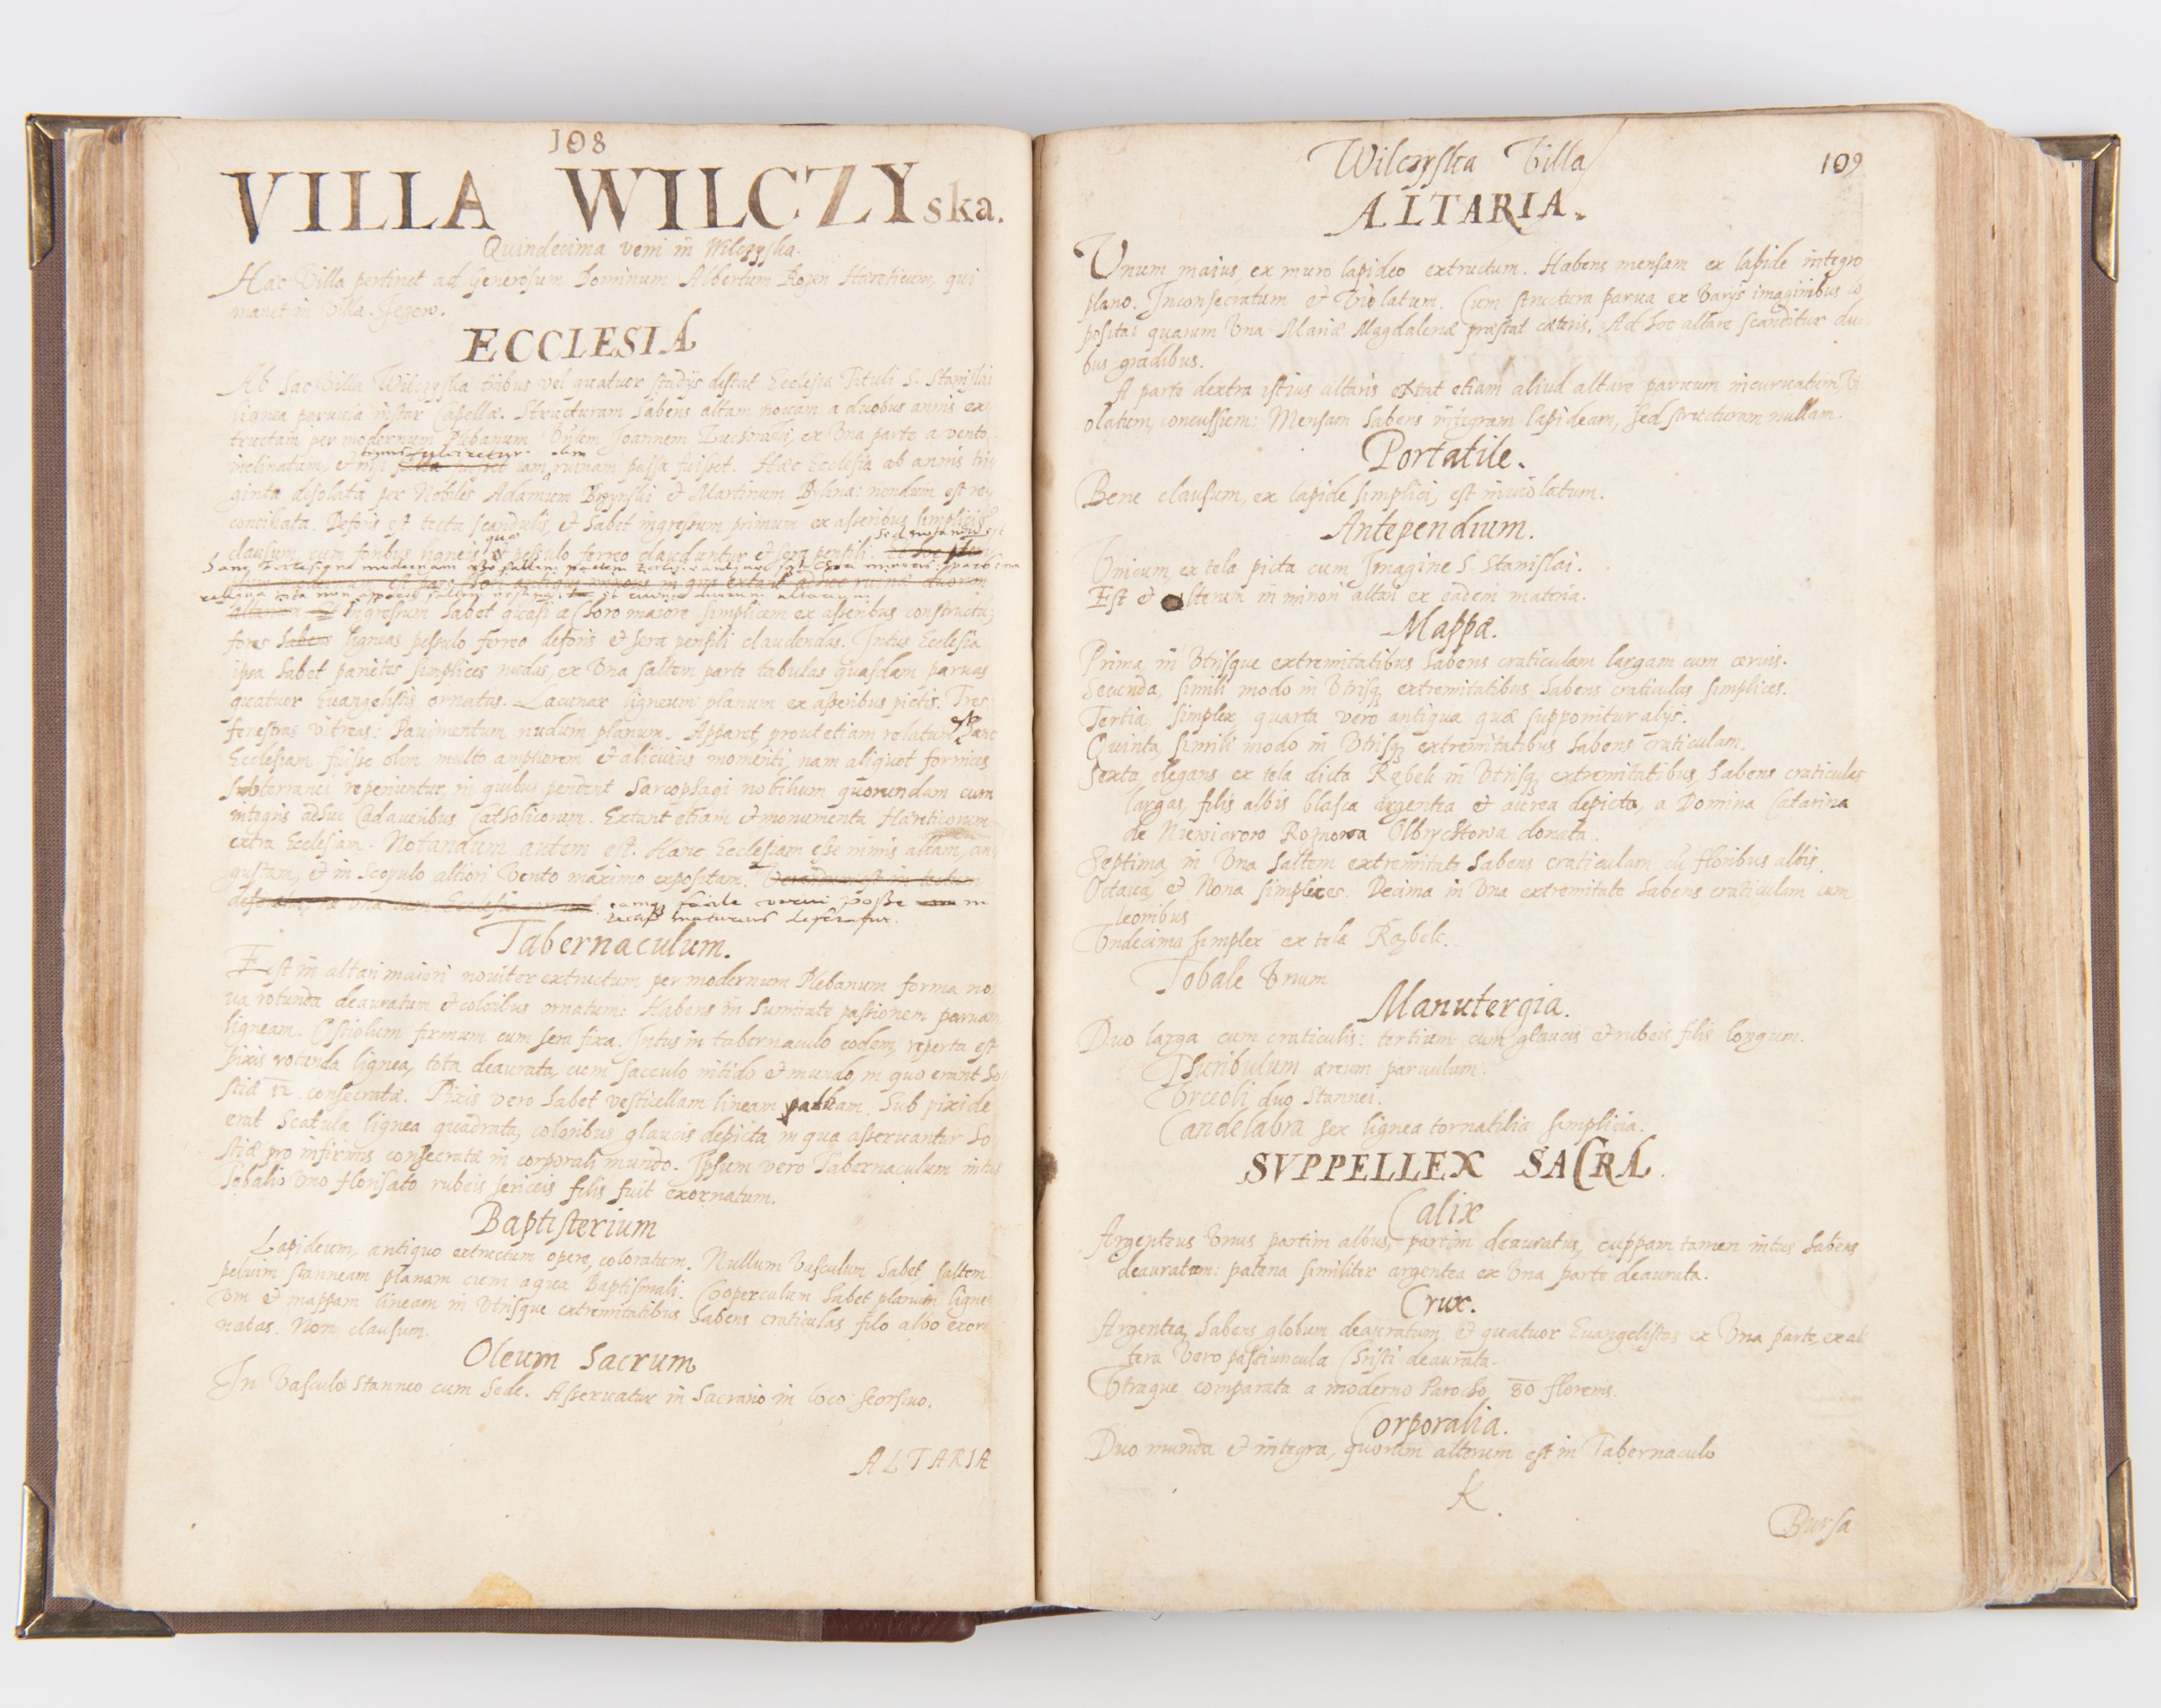 108
VILLA WILCZYska.
Quindecima veni in Wilczyska.
Hæc Villa pertinet ad Generosum Dominum Albertum Rozen Hæreticum, qui
manet in Villa Jezow.
ECCLESIA
Ab hac Villa Wilczyska tribus vel quatuor stadijs distat Ecclesia Tituli S. Stanislai
lignea paruula instar Capellæ. Structuram habens altam nouam a duobus annis ex
tructam per modernum Plebanum Joannem ex Vna parte a vento
inclinatam, et nisi iam ruinam passa fuisset. Hæc Ecclesia ab annis tri
ginta desolata per Nobiles Adamum Brzynski et Martinum Bylina: nondum est re
conciliata. Deforis est tecta scandulis, et habet ingressum primum ex asseribus simplicib
clausum cum foribus ligneis quæ pessulo ferreo clauduntur et sera pensili. sed notandum est
hanc Ecclesiam modernam
Ingressum habet quasi a Choro maiore simplicem ex asseribus constructu,
fores ligneas pessulo ferreo deforis et sera pensili claudendas. Intus Ecclesia
ipsa habet parietes simplices nudos, ex Vna saltem parte tabulas quasdam paruas
quatuor Euangelistis ornatas. Lacunar ligneum planum ex asseribus pictis. Tres
fenestras vitreas: Pauimentum nudum planum. Apparet, prout etiam relatum est hanc
Ecclesiam fuisse olim multo ampliorem et alicuius momenti, nam aliquot fornices
subterranei reperiuntur, in quibus pendent Sarcophagi nobilium quorundam cum
integris adhuc Cadaueribus Catholicorum. Extant etiam et monumenta Hæreticorum
extra Ecclesiam. Notandum autem est. Hanc Ecclesiam esse nimis altam, an
gustam, et in Scopulo altiori Vento maximo expositam.
eamq facile verui posse in
maturius deferatur.
Tabernaculum.
Est in altari maiori nouiter extructum per modernum Plebanum forma no
ua rotunda deauratum et coloribus ornatum: Habens in sumitate passionem paruam
ligneam. Ostiolum firmum cum sera fixa. Intus in tabernaculo eodem reperta est
pixis rotunda lignea, tota deaurata, cum sacculo nitido et mundo, in quo erant ho
stiæ 12. consecratæ. Pixis vero habet vesticellam lineam. Sub pixide
erat Scatula lignea quadrata, coloribus glaucis depicta in qua asseruantur ho
stiæ pro infirmis consecratæ in corporali mundo. Ipsum vero Tabernaculum intus
Tobalio Vno florisato rubeis sericeis filis fuit exornatum.
Baptisterium
Lapideum, antiquo extructum opere, coloratum. Nullum Vasculum habet saltem
peluim stanneam planam cum aqua Baptismali. Cooperculum habet planum ligne
um et mappam lineam in Vtrisque extremitatibus habens craticulas filo albo exor
natas. Non clausum.
Oleum Sacrum
In Vasculo Stanneo cum Sede. Asseruatur in Sacrario in loco seorsiuo.
ALTARIA
Wilczyska Villa 109
ALTARIA.
Vnum maius, ex muro lapideo extructum. Habens mensam ex lapide integro
plano. Inconsecratum et Violatum. Cum structura parua ex Varijs imaginibus co
posita: quarum Vna Mariæ Magdalenæ præstat cæteris. Ad hoc altare scanditur duo
bus gradibus.
A parte dextra istius altaris extat etiam aliud altare paruum incuruatum, Vi
olatum, concussum: Mensam habens integram lapideam, sed structuram nullam.
Portatile.
Bene clausum, ex lapide simplici, est inuiolatum.
Antependium.
Vnicum, ex tela picta cum Imagine S. Stanislai.
Est et alterum in minori altari ex eadem materia.
Mappæ.
Prima in Vtrisque extremitatibus habens craticulam largam cum ceruis.
Secunda, simili modo in Vtrisq extremitatibus habens craticulas simplices.
Tertia, simplex, quarta vero antiqua quæ supponitur alijs.
Quinta, simili modo in Vtrisq extremitatibus habens craticulam.
Sexta, elegans ex tela dicta Rąbek in Vtrisq extremitatibus habens craticulas
largas, filis albis blasca argentea et aurea depicta, a Domina Catarina
de Niewiarowo Roznowa Olbrychtowa donata.
Septima, in Vna saltem extremitate habens craticulam cu floribus albis.
Octaua et Nona simplices. Decima in Vna extremitate habens craticulam cum
leonibus
Vndecima simplex ex tela Rąbek.
Tobale Vnum
Manutergia.
Duo larga cum craticulis: tertium cum glaucis et rubeis filis longum.
Thuribulum æreum paruulum.
Vrceoli duo Stannei.
Candelabra sex lignea tornatilia simplicia.
SVPPELLEX SACRA.
Calix
Argenteus Vnus partim albus, partim deauratus, cuppam tamen intus habens
deauratam: patena similiter argentea ex Vna parte deaurata.
Crux.
Argentea habens globum deauratum et quatuor Euangelistas ex Vna parte, ex al
tera Vero passiuncula Christi deaurata.
Vtraque comparata a moderno Parocho 80 florenis.
Corporalia.
Duo munda et integra, quorum alterum est in Tabernaculo
K
Bursa